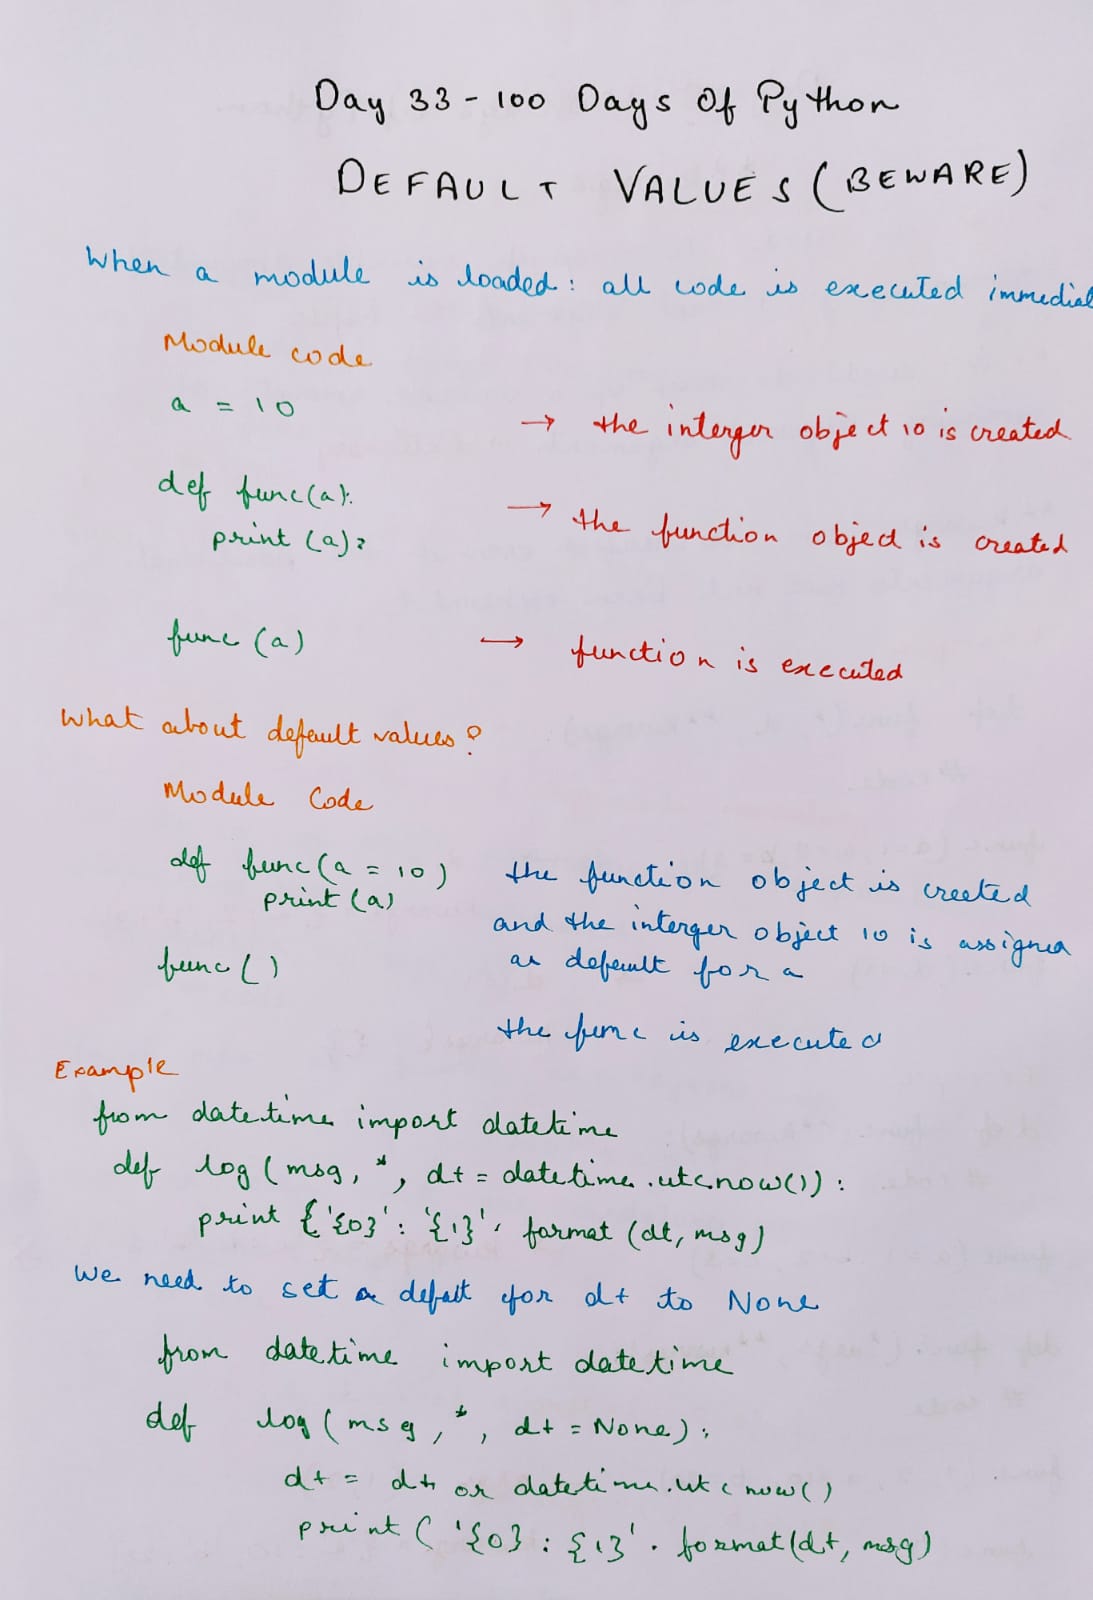 Day 33 - 100 Days Of Python
DEFAULT VALUES (BEWARE)
When a module is loaded: all code is executed immedial
Module code
a = 10 → the interger object 10 is created
def func(a): → the function object is created
print (a)
func (a) → function is executed
What about default values?
Module Code
def func(a = 10) the function object is created
print (a) and the interger object 10 is assigned
func() as default for a
the func is executed
Example
from datetime import datetime
def log (msg, *, dt = datetime.utcnow()):
print {'{0}': '{1}'. format (dt, msg)
We need to set a defalt for dt to None
from datetime import datetime
def log (msg, *, dt = None):
dt = dt or datetime.utcnow()
print ( '{0} : {1}' . format(dt, msg)